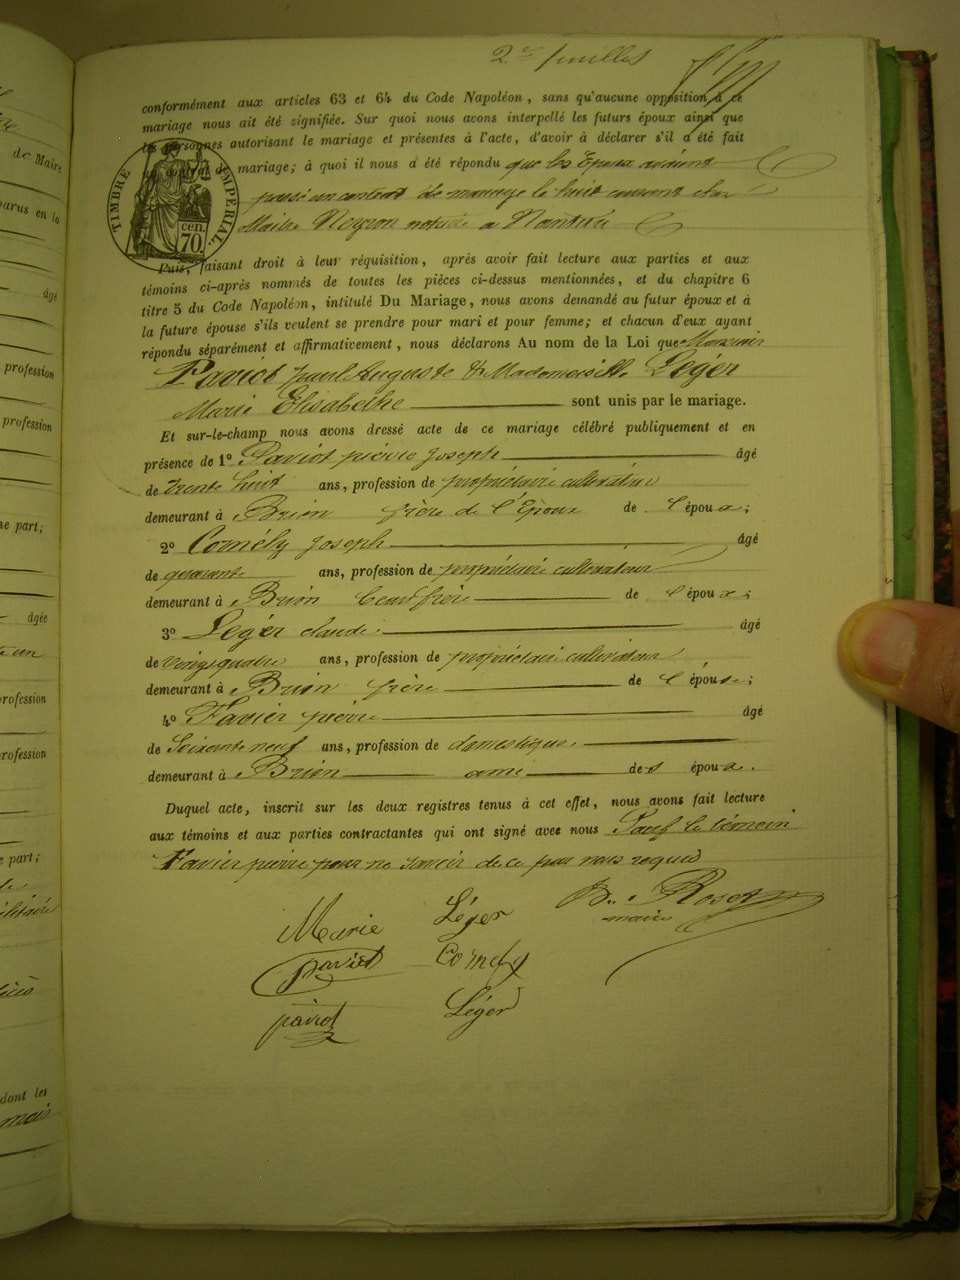 2e feuillet
conformément aux articles 63 et 64 du Code Napoléon, sans qu'aucune opposition à ce
mariage nous ait été signifiée. Sur quoi nous avons interpellé les futurs époux ainsi que
les personnes autorisant le mariage et présentes à l'acte, d'avoir à déclarer s'il a été fait
un contrat de mariage; à quoi il nous a été répondu que les Epoux avaient
passé un contrat de mariage le huit courant chez
Maitre Neyron notaire a Nantua
TIMBRE IMPERIAL.
cen.
70.
Puis, faisant droit à leur réquisition, après avoir fait lecture aux parties et aux
témoins ci-après nommés de toutes les pièces ci-dessus mentionnées, et du chapitre 6
titre 5 du Code Napoléon, intitulé Du Mariage, nous avons demandé au futur époux et à
la future épouse s'ils veulent se prendre pour mari et pour femme; et chacun d'eux ayant
répondu séparément et affirmativement, nous déclarons Au nom de la Loi que Monsieur
Paviot paul Auguste & Mademoiselle Léger
Marie Elisabethe sont unis par le mariage.
Et sur-le-champ nous avons dressé acte de ce mariage célébré publiquement et en
présence de 1° Paviot pierre Joseph âgé
de trente huit ans, profession de propriétaire cultivateur
demeurant à Brion frère de l'Epoux de l'époux;
2° Cornély Joseph âgé
de quarante ans, profession de propriétaire cultivateur
demeurant à Brion Beaufrère de l'époux;
3° Léger claude âgé
de vingt quatre ans, profession de propriétaire cultivateur
demeurant à Brion frère de l'épouse;
4° Favier pierre âgé
de Seixante neuf ans, profession de domestique
demeurant à Brion ami des époux.
Duquel acte, inscrit sur les deux registres tenus à cet effet, nous avons fait lecture
aux témoins et aux parties contractantes qui ont signé avec nous Sauf le témoin
Favier pierre pour ne savoir de ce par nous requis
Marie Léger Roset
maire
paviot Cornely
paviot Léger
de Maire
parus en la
âgé
profession
profession
ne part;
âgée
profession
profession
e part;
dont les